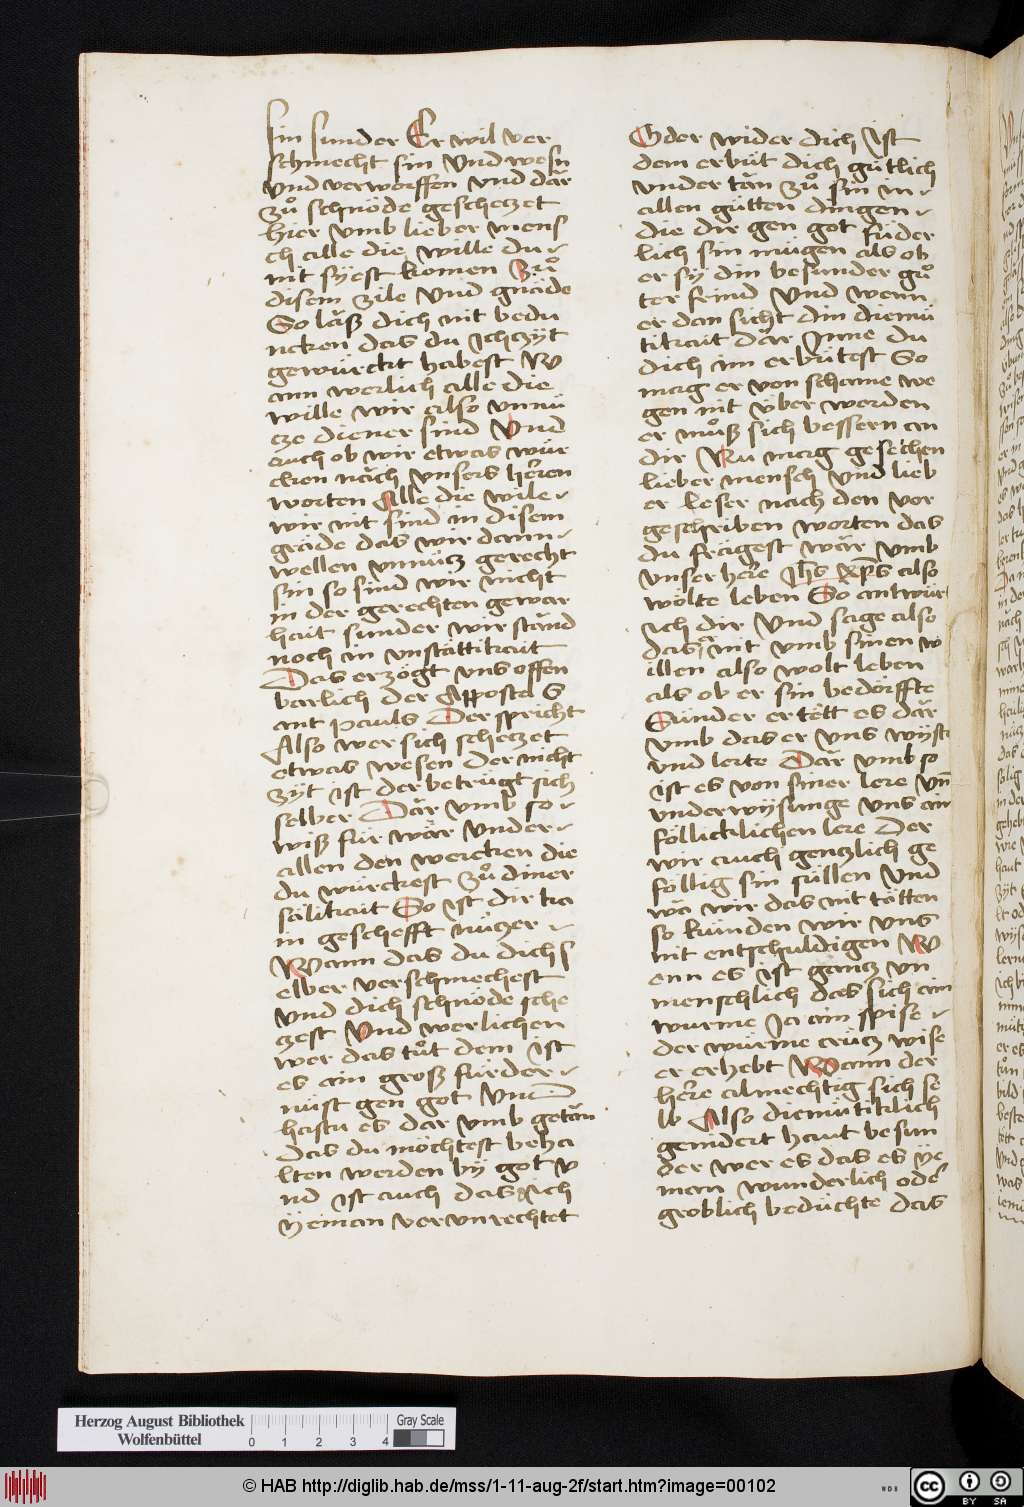 sin sunder Er wil ver
schmecht sin Vnd wesn
vnd verworffen vnd dar
zuͦ schnöde geschetzet
hier vmb lieber mens
ch alle die wille du
nit syest komen Zuͦ
disem zile Vnd gnäde
So läß dich nit bedu
ncken das du Ichczyt
gewürckt habest W
ann werlich alle die
wille wir also vnnü
cze diener sind Vnd
auch ob wir etwas wür
cken näch vnsers herren
worten Alle die wile
wir nit sind in disem
gräde das wir dann
wellen vnnücz gerecht
sin so sind wir nicht
in der gerechten gewar
hait sunder wir ständ
noch in vnstättikait
Das erzögt vns offen
barlich der Apposta S
ant pauls Der spricht
Also wer sich schetzet
etwas wesen der nicht
zyt ist der betrügt sich
selber Där vmb so
wiß für wär vnder
allen den wercken die
du würckest zuͦ diner
sälikait So ist dir ka
in geschefft nüczer
Wann das du dich s
elber verschmechest
vnd dich schnöde sche
czest Vnd werlichen
wer das tuͦt dem ist
es ain groß fürder
nüst gen got Vnd
hastu es dar vmb getän
Das du möchtest beha
lten werden by got v
nd ist auch das ich
yeman vervnrechtet
Oder wider dich ist
dem erbüt dich gütlich
vnder tän zuͦ sin in
allen gütten dingen
die dir gen got füder
lich sin mügen als ob
er sy din besunder guͦ
ter frind Vnd wenn
er dan sicht din diemü
tikait där Inne du
dich im erbütest So
mag er von schame we
gen nit über werden
er muͦß sich bessern an
dir Nu mag gesechen
lieber mensch Vnd lieb
er leser nach den vor
geschriben worten das
du frägest wär vmb
vnser here Jhs xps also
wölte leben So antwürt
ich dir Vnd sage also
das nit vmb sinen w
illen also wolt leben
als ob er sin bedörffte
Sünder er tett es där
vmb das er vns wyste
vnd lerte Där vmb so
ist es von siner lere vn̄
vnderwysunge vns ain
föllicklichen lere Der
wir auch genczlich ge
föllig sin süllen Vnd
wä wir das nit tötten
so kunden wir vns
nit entschuldigen W
enn es ist gäncz vn
menschlich das sich ain
wurme Ja ain spise
der würme crücz wise
er erhebt Wann der
here almechtig sich se
lb Also diemütiklich
genidert haut besun
der wer es das es ye
man wunderlich oder
groblich bedüchte das
Herzog August Bibliothek
Wolfenbüttel
0 1 2 3 4
Gray Scale
© HAB http://diglib.hab.de/mss/1-11-aug-2f/start.htm?image=00102
WDB
cc BY SA